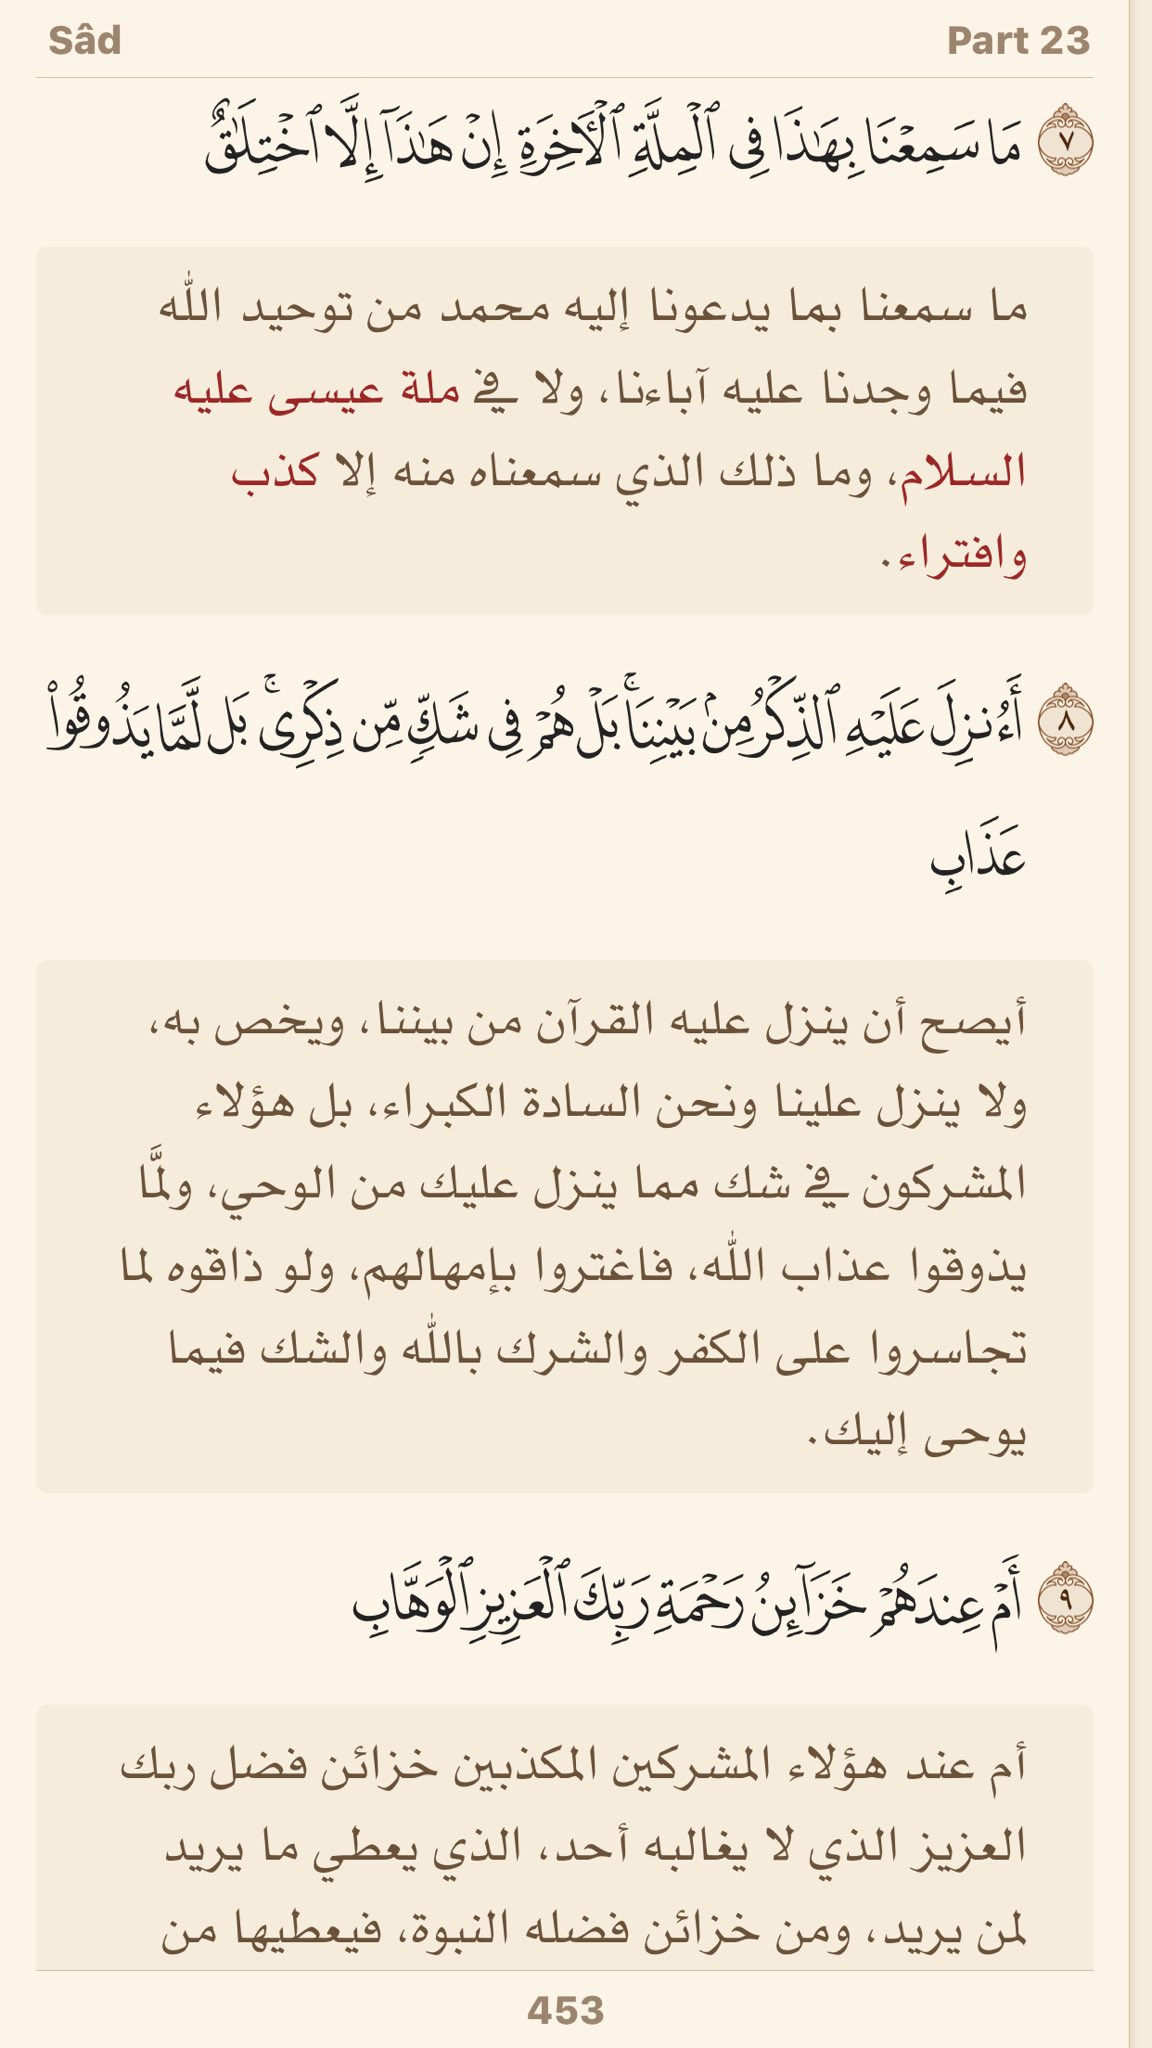 Sâd
Part 23
٧ مَا سَمِعْنَا بِهَٰذَا فِى ٱلْمِلَّةِ ٱلْءَاخِرَةِ إِنْ هَٰذَآ إِلَّا ٱخْتِلَٰقٌ
ما سمعنا بما يدعونا إليه محمد من توحيد الله
فيما وجدنا عليه آباءنا، ولا في ملة عيسى عليه
السلام، وما ذلك الذي سمعناه منه إلا كذب
وافتراء.
٨ أَءُنزِلَ عَلَيْهِ ٱلذِّكْرُ مِنۢ بَيْنِنَا ۚ بَلْ هُمْ فِى شَكٍّ مِّن ذِكْرِى ۚ بَل لَّمَّا يَذُوقُوا۟
عَذَابِ
أيصح أن ينزل عليه القرآن من بيننا، ويخص به،
ولا ينزل علينا ونحن السادة الكبراء، بل هؤلاء
المشركون في شك مما ينزل عليك من الوحي، ولمَّا
يذوقوا عذاب الله، فاغتروا بإمهالهم، ولو ذاقوه لما
تجاسروا على الكفر والشرك بالله والشك فيما
يوحى إليك.
٩ أَمْ عِندَهُمْ خَزَآئِنُ رَحْمَةِ رَبِّكَ ٱلْعَزِيزِ ٱلْوَهَّابِ
أم عند هؤلاء المشركين المكذبين خزائن فضل ربك
العزيز الذي لا يغالبه أحد، الذي يعطي ما يريد
لمن يريد، ومن خزائن فضله النبوة، فيعطيها من
453